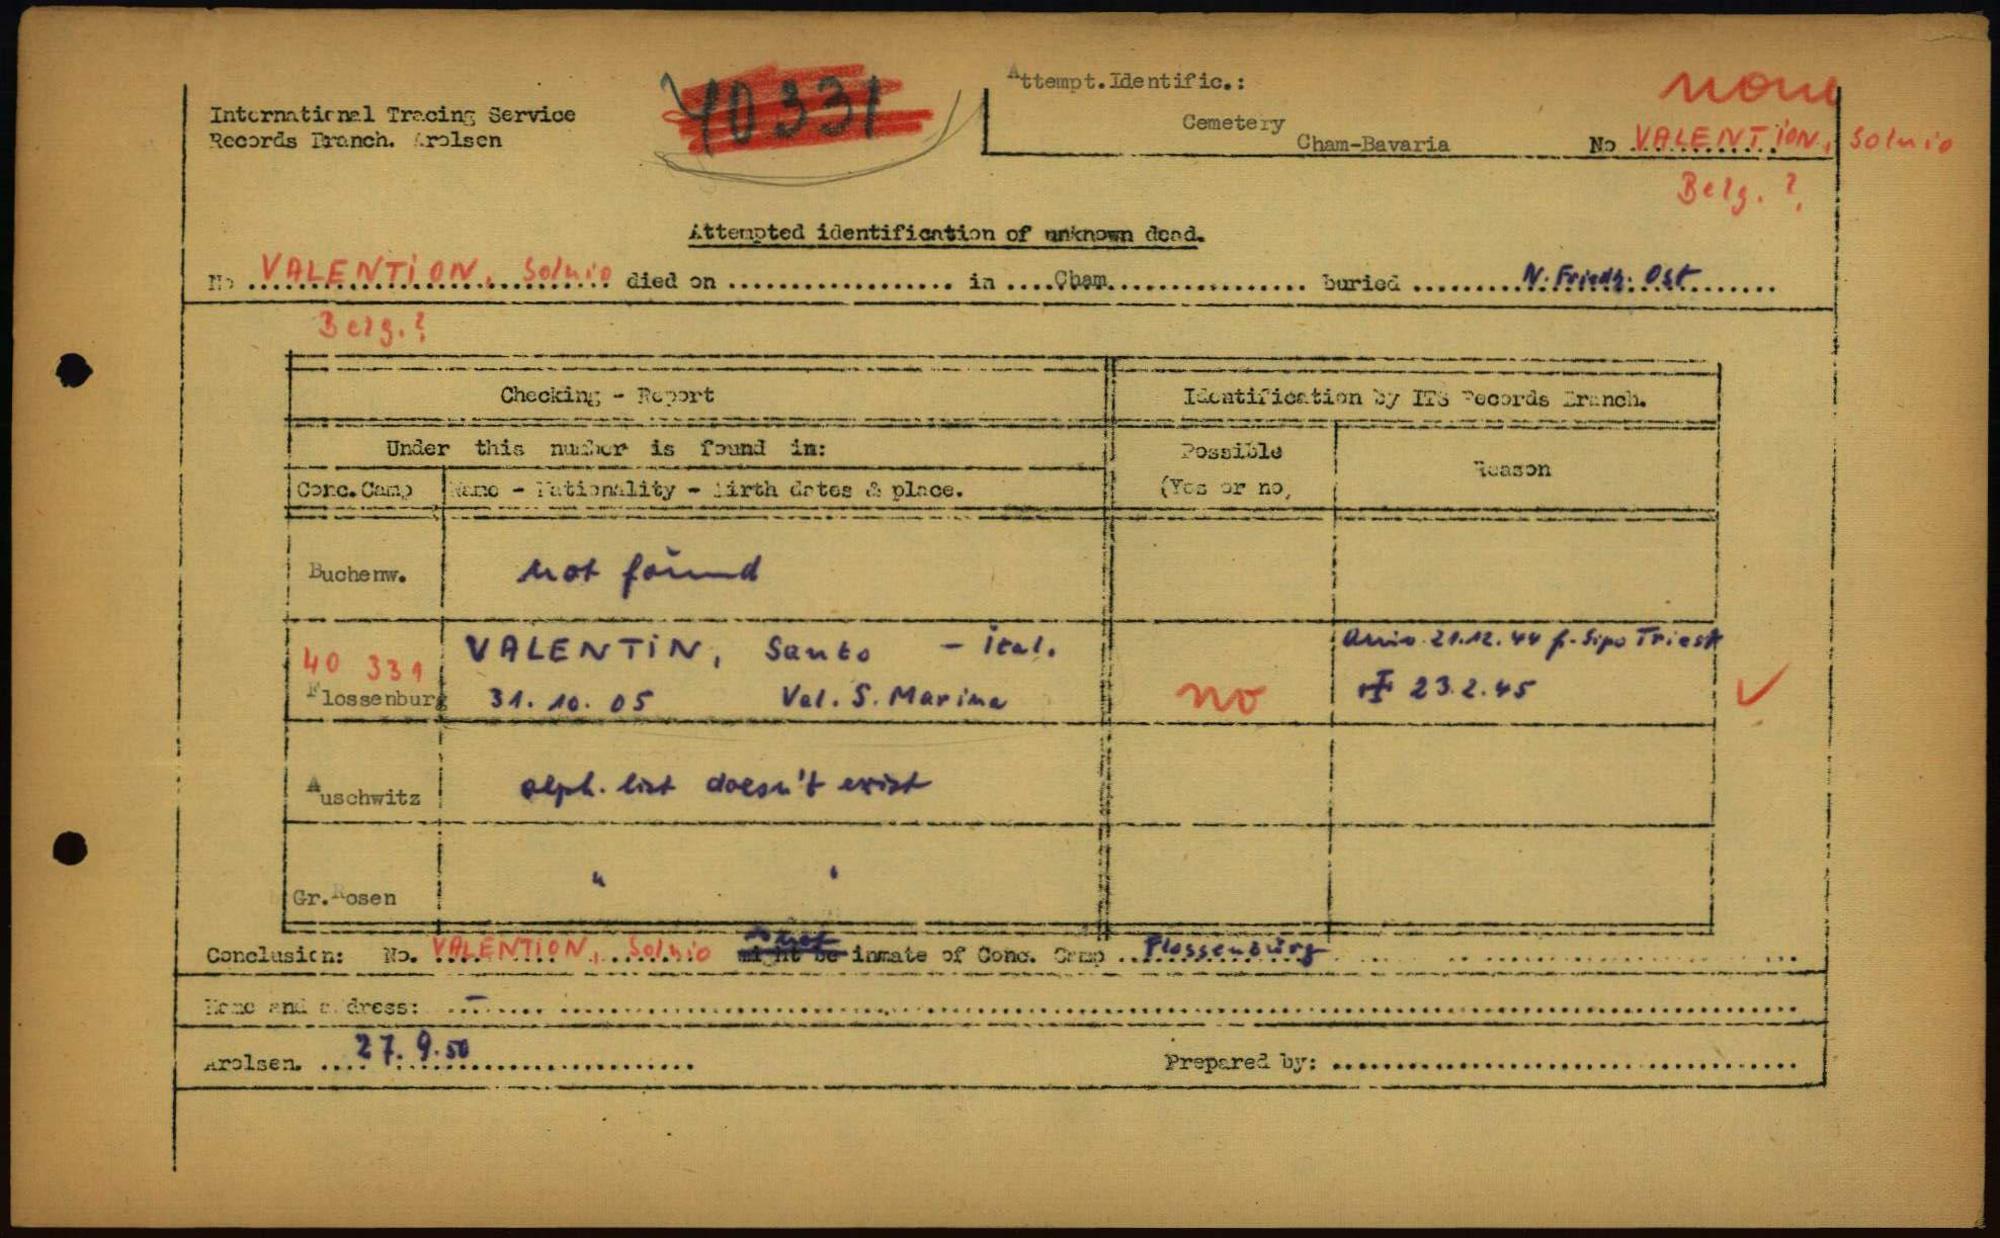 International Tracing Service
Records Branch. Arolsen
40331
Attempt.Identific.:
Cemetery
Cham-Bavaria
No VALENTION, Solnio
Belg. ?
Attempted identification of unknown dead.
No VALENTION, Solnio died on .................. in ....Cham................. buried .........N. Friedh. Ost.......
Belg. ?
Checking - Report
Identification by ITS Records Branch.
Under this number is found in:
Possible
(Yes or no,
Reason
Conc.Camp
Name - Nationality - Birth dates & place.
Buchenw.
not found
40 331
Flossenburg
VALENTIN, Santo - Ital.
31. 10. 05 Val. S. Marina
no
21.12.44 f. Sipo Triest
23.2.45
Auschwitz
alph. list doesn't exist
Gr.Rosen
" "
Conclusion: No. VALENTION, Solnio might be inmate of Conc. Camp Flossenbürg
Name and address: –
Arolsen. 27. 9. 50
Prepared by: